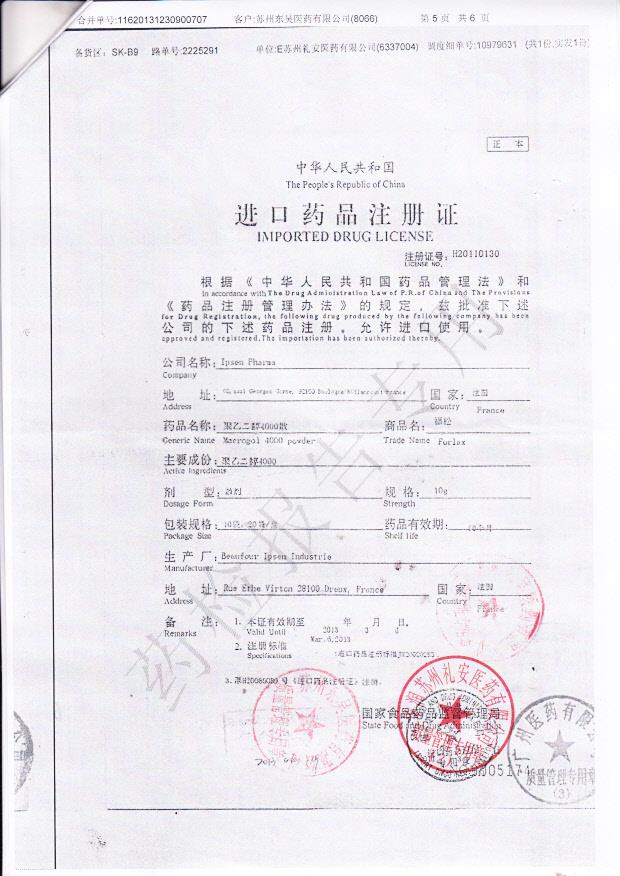 合并单号:11620131230900707 客户:苏州东吴医药有限公司(8066) 第 5 页 共 6 页
备货区: SK-B9 路单号:2225291 单位:E苏州礼安医药有限公司(6337004) 调度细单号:10979631 (共1份,实发1份)
正 本
中华人民共和国
The People's Republic of China
进口药品注册证
IMPORTED DRUG LICENSE
注册证号: H20110130
LICENSE NO.
根据《中华人民共和国药品管理法》和
In accordance with The Drug Administration Law of P.R.of China and The Provisions
《药品注册管理办法》的规定，兹批准下述
for Drug Registration, the following drug produced by the following company has been
公司的下述药品注册。允许进口使用。
approved and registered.The importation has been authorized thereby.
公司名称: Ipsen Pharma
Company
地 址: Georges Gorse, France 国 家: 法国
Address Country France
药品名称: 聚乙二醇4000散 商品名: 福松
Generic Name Macrogol 4000 powder Trade Name Forlax
主要成份: 聚乙二醇4000
Active Ingredients
剂 型: 散剂 规 格: 10g
Dosage Form Strength
包装规格: 10袋, 20袋/盒 药品有效期:
Package Size Shelf life
生 产 厂: Beaufour Ipsen Industrie
Manufacturer
地 址: Rue Ethe Virton 28100 Dreux, France 国 家: 法国
Address Country France
备 注: 1. 本证有效期至 年 月 日。
Remarks Valid Until 2013 3 6
Mar.6,2013
2. 注册标准
Specifications 进口药品注册标准
3.原H20080030 号《进口药品注册证》注销。
国家食品药品监督管理局
State Food and Drug Administration
苏州礼安医药有限公司
广州医药有限公
质量管理专用章
(3)
药检报告专用